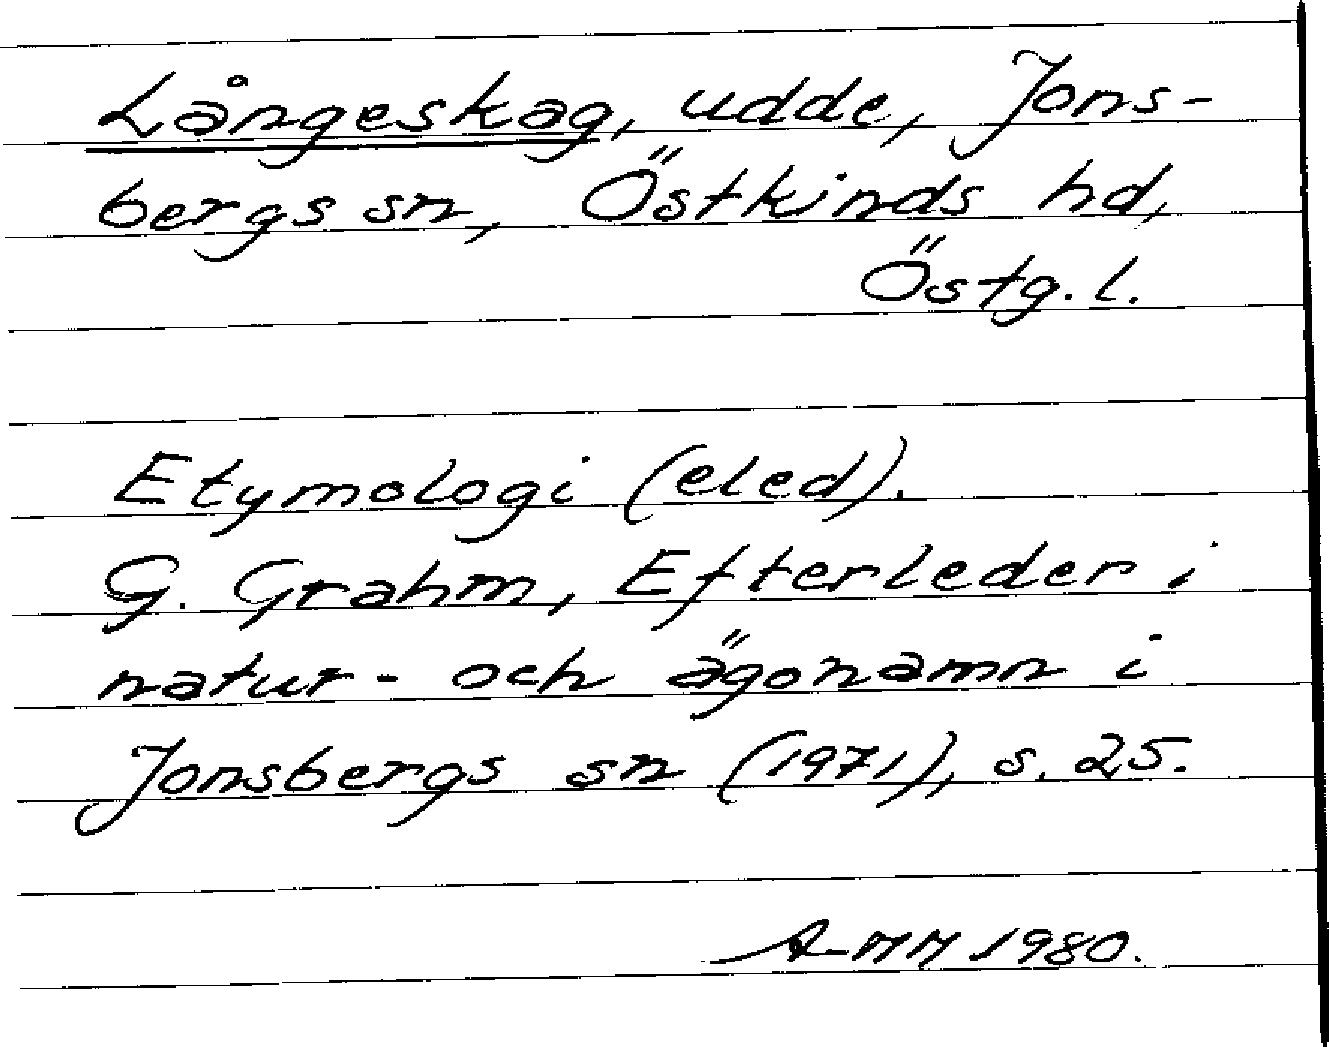 Långeskag, udde, Jons-
bergs sn, Östkinds hd,
Östg. l.
Etymologi (eled).
G. Grahm, Efterleder i
natur- och ägonamn i
Jonsbergs sn (1971), s. 25.
A-MM 1980.